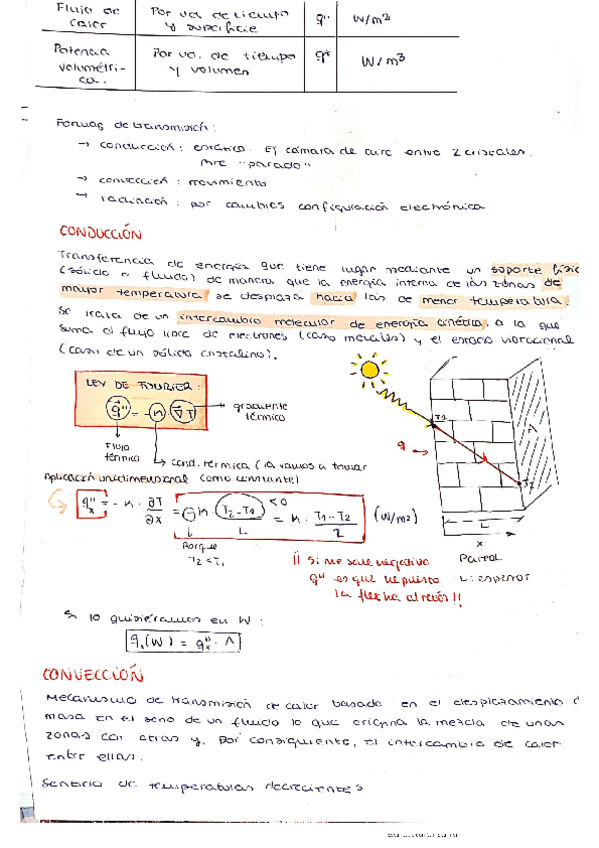 Flujo de Por ud. de tiempo q" W/m²
calor y superficie
Potencia Por ud. de tiempo q* W/m³
volumétri- y volumen
ca.
Formas de transmisión:
→ conducción: estático. Ej cámara de aire entre 2 cristales.
Aire "parado"
→ convección: movimiento
→ radiación: por cambios configuración electrónica
CONDUCCIÓN
Transferencia de energía que tiene lugar mediante un soporte físic
(sólido o fluido) de manera que la energía interna de las zonas de
mayor temperatura se desplaza hacia las de menor temperatura.
Se trata de un intercambio molecular de energía cinética, a la que
suma el flujo libre de electrones (caso metales) y el estado vibracional
(caso de un sólido cristalino).
LEY DE FOURIER:
q" = -k · ∇T → gradiente
térmico
Flujo
térmico
→ cond. térmica (la vamos a tomar
como constante)
T1
q →
A
T2
L
x
Aplicación unidimensional
q"x = -k · ∂T/∂x = -k · (T2-T1)/L <0 = k · (T1-T2)/L (W/m²)
Porque
T2<T1
!! Si me sale negativo
q" es que he puesto
la flecha al revés!!
Pared
L: espesor
Si lo quisiéramos en W:
qx(W) = q"x · A
CONVECCIÓN
Mecanismo de transmisión de calor basado en el desplazamiento d
masa en el seno de un fluido lo que origina la mezcla de unas
zonas con otras y, por consiguiente, el intercambio de calor
entre ellas.
Sentido de temperaturas decrecientes